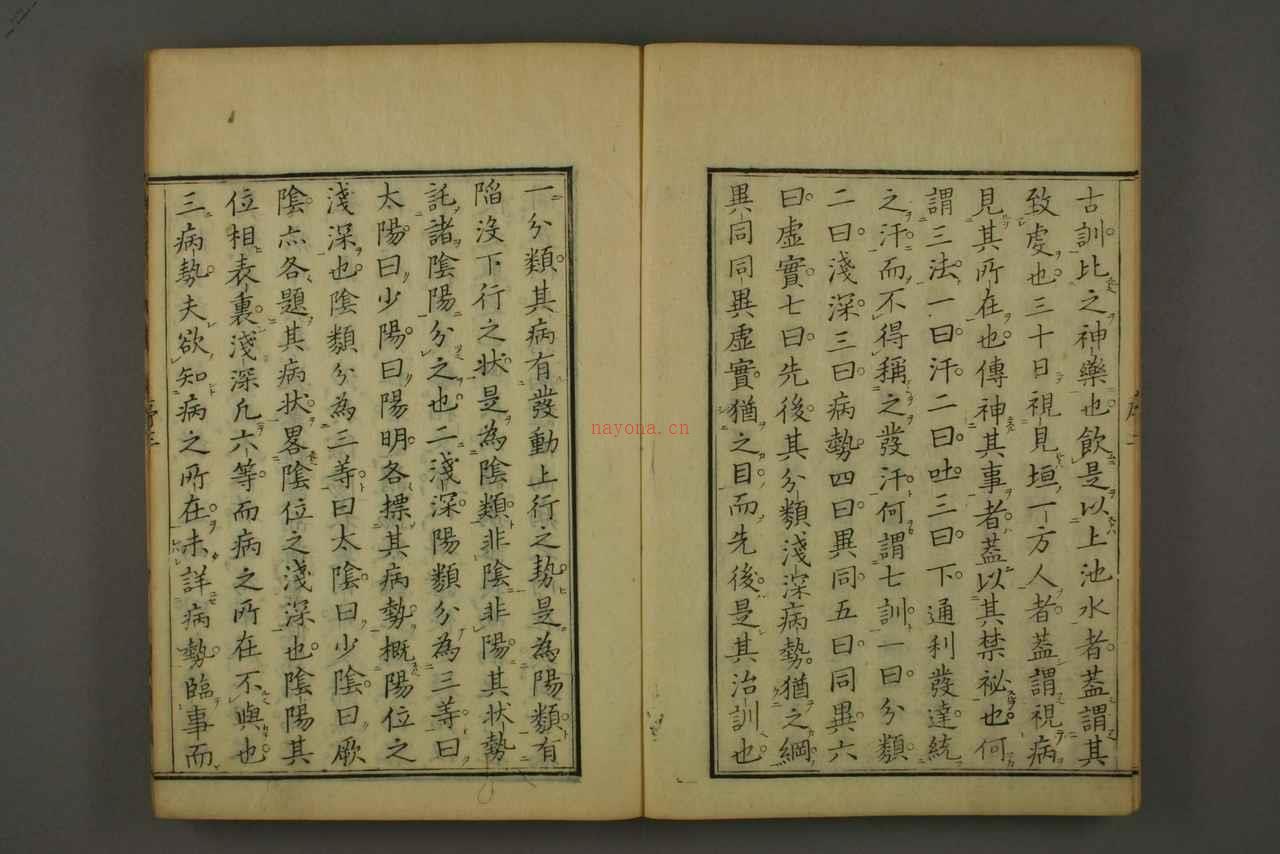 古訓比之神藥也飮是以上池水者蓋謂其
致䖏也三十日視見垣一方人者蓋謂視病
見其所在也傳神其事者蓋以其禁祕也何
謂三法一曰汗二曰吐三曰下通利發達統
之汗而不得稱之發汗何謂七訓一曰分類
二曰淺深三曰病勢四曰異同五曰同異六
曰虛實七曰先後其分類淺深病勢猶之綱
異同同異虛實猶之目而先後是其治訓也
一分類其病有發動上行之勢是為陽類有
陷沒下行之状是為陰類非陰非陽其状勢
託諸陰陽分之也二淺深陽類分為三等曰
太陽曰少陽曰陽明各摽其病勢概陽位之
淺深也陰類分為三等曰太陰曰少陰曰厥
陰亦各題其病状畧陰位之淺深也陰陽其
位相表裏淺深凡六等而病之所在不與也
三病勢夫欲知病之所在未詳病勢臨事而
nayona.cn